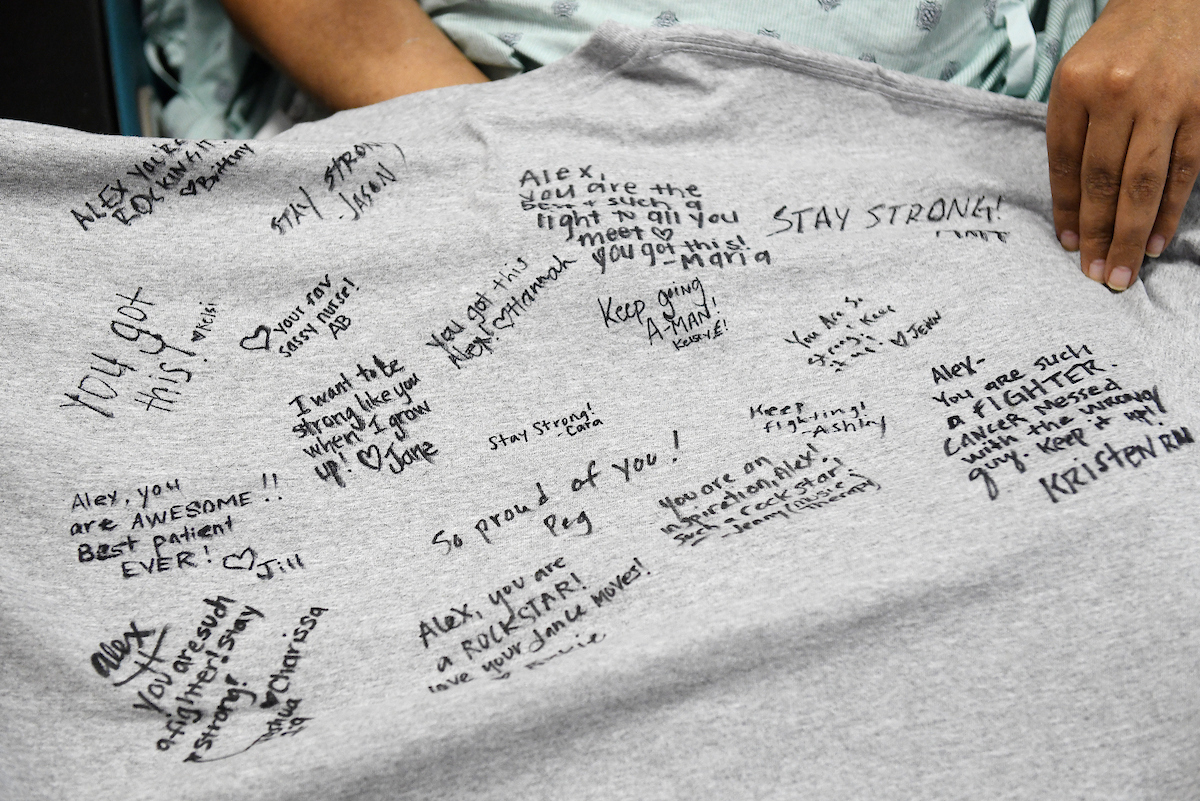 ALEX YOU'RE
ROCKIN' IT
♡Brittny
STAY STRONG
-JASON
Alex,
you are the
best & such a
light to all you
meet ♡
you got this!
-Maria
STAY STRONG!
You got
this!
♥Kelsi
♡ your fav
sassy nurse!
AB
You got this
Alex! ♡Hannah
Keep going
A-MAN!
Kelsey E!
You Are So
strong! Keep
♡ JENN
Alex-
You are such
a FIGHTER.
CANCER MESSED
with the wrong
guy. Keep it up!!
KRISTEN RN
I want to be
strong like you
when I grow
up! ♡Jane
Stay Strong!
-Cara
Keep
fighting!
-Ashley
Alex, you
are AWESOME!!
Best patient
EVER! ♡Jill
So proud of you!
Peg
You are an
inspiration, Alex!
Such a rock star!
-Jenny (music
therapy)
Alex, you are
a ROCKSTAR!
love your dance moves!
alex
You are such
a fighter! Stay
strong!
♥Charissa